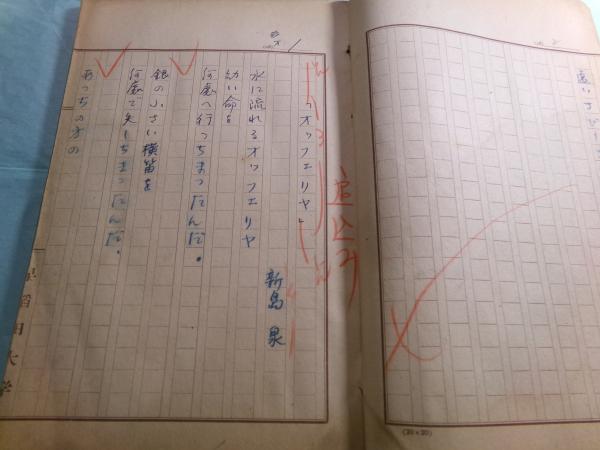 「オッフェリヤ」
新島 泉
水に流れるオッフェリヤ
幼い命を
何處へ行っちまったんだ。
銀の小さい横笛を
何處で失しちまったんだ。
あっちの方の
早稲田大学
追込み
(20×20)